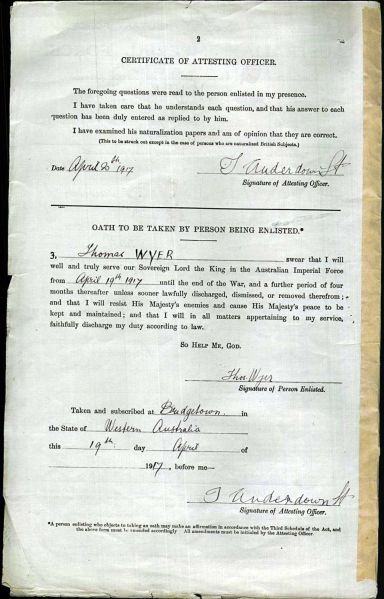 2
CERTIFICATE OF ATTESTING OFFICER.
The foregoing questions were read to the person enlisted in my presence.
I have taken care that he understands each question, and that his answer to each
question has been duly entered as replied to by him.
I have examined his naturalization papers and am of opinion that they are correct.
(This to be struck out except in the case of persons who are naturalized British Subjects.)
Date April 20th 1917
J Anderdown Lt
Signature of Attesting Officer.
OATH TO BE TAKEN BY PERSON BEING ENLISTED.*
I, Thomas WYER swear that I will
well and truly serve our Sovereign Lord the King in the Australian Imperial Force
from April 19th 1917 until the end of the War, and a further period of four
months thereafter unless sooner lawfully discharged, dismissed, or removed therefrom;
and that I will resist His Majesty's enemies and cause His Majesty's peace to be
kept and maintained; and that I will in all matters appertaining to my service,
faithfully discharge my duty according to law.
SO HELP ME, GOD.
Thos Wyer
Signature of Person Enlisted.
Taken and subscribed at Bridgetown in
the State of Western Australia
this 19th day April of
1917, before me—
J Anderdown Lt
Signature of Attesting Officer.
*A person enlisting who objects to taking an oath may make an affirmation in accordance with the Third Schedule of the Act, and
the above form must be amended accordingly All amendments must be initialed by the Attesting Officer.